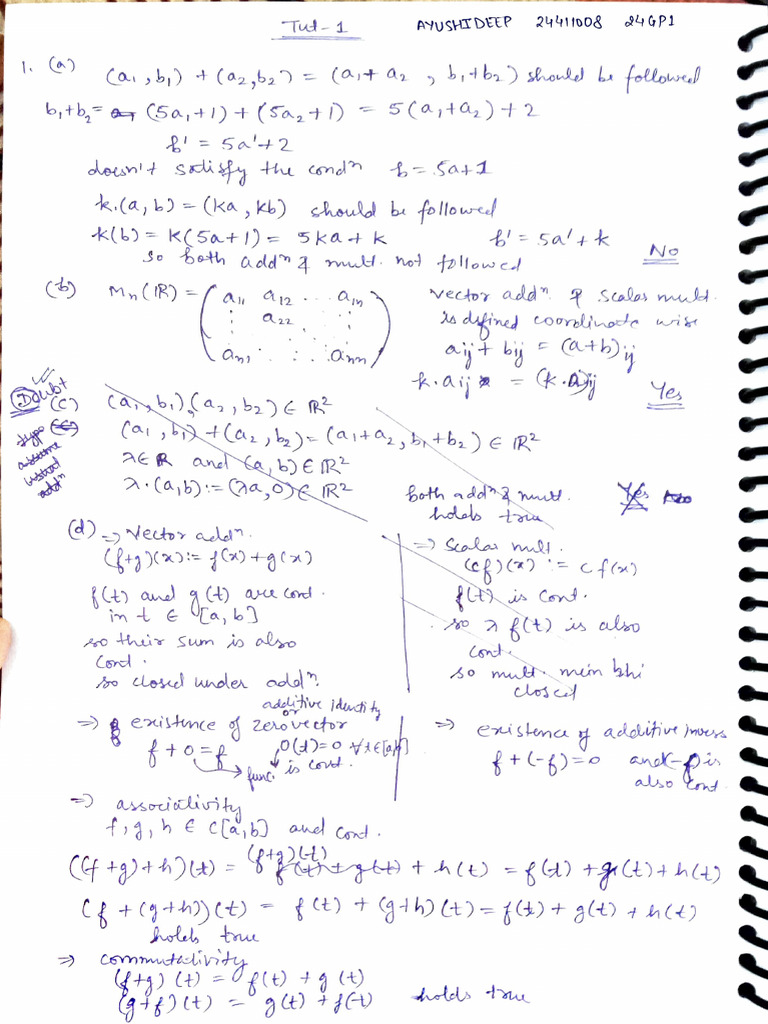 Tut-1
AYUSHIDEEP 24411008 24GP1
1. (a) (a₁, b₁) + (a₂, b₂) = (a₁+ a₂ , b₁+b₂) should be followed
b₁+b₂ = (5a₁+1) + (5a₂+1) = 5(a₁+a₂)+2
b' = 5a'+2
doesn't satisfy the condⁿ b = 5a+1
k.(a, b) = (ka, kb) should be followed
k(b) = k(5a+1) = 5ka + k b' = 5a' + k
so both addⁿ & mult. not followed No
(b) Mₙ(ℝ) = ( a₁₁ a₁₂ ... a₁ₙ
a₂₂
aₙ₁ ... aₙₙ )
vector addⁿ & scalar mult.
is defined coordinate wise
aᵢⱼ + bᵢⱼ = (a+b)ᵢⱼ
k.aᵢⱼ = (k.a)ᵢⱼ
Yes
Doubt
(c) (a₁, b₁), (a₂, b₂) ∈ ℝ²
typo
(a₁, b₁) + (a₂, b₂) = (a₁+a₂, b₁+b₂) ∈ ℝ²
λ∈ℝ and (a, b) ∈ ℝ²
λ.(a,b) := (λa, 0) ∈ ℝ²
both addⁿ & mult.
holds true
Yes
(d) => vector addⁿ.
(f+g)(x) := f(x)+g(x)
f(t) and g(t) are cont.
in t ∈ [a, b]
so their sum is also
cont.
so closed under addⁿ.
=> scalar mult.
(cf)(x) := c f(x)
f(t) is cont.
so λ f(t) is also
cont.
so mult. mein bhi
closed
additive identity
or
=> existence of zero vector
f + 0 = f 0(t)=0 ∀ t∈[a,b]
func. is cont.
=> existence of additive inverse
f + (-f) = 0 and -f is
also cont.
=> associativity
f, g, h ∈ C[a, b] and cont.
(f+g)(t)
((f+g)+h)(t) = f(t) + g(t) + h(t) = f(t) + g(t) + h(t)
(f + (g+h))(t) = f(t) + (g+h)(t) = f(t) + g(t) + h(t)
holds true
=> commutativity
(f+g)(t) = f(t) + g(t)
(g+f)(t) = g(t) + f(t) holds true